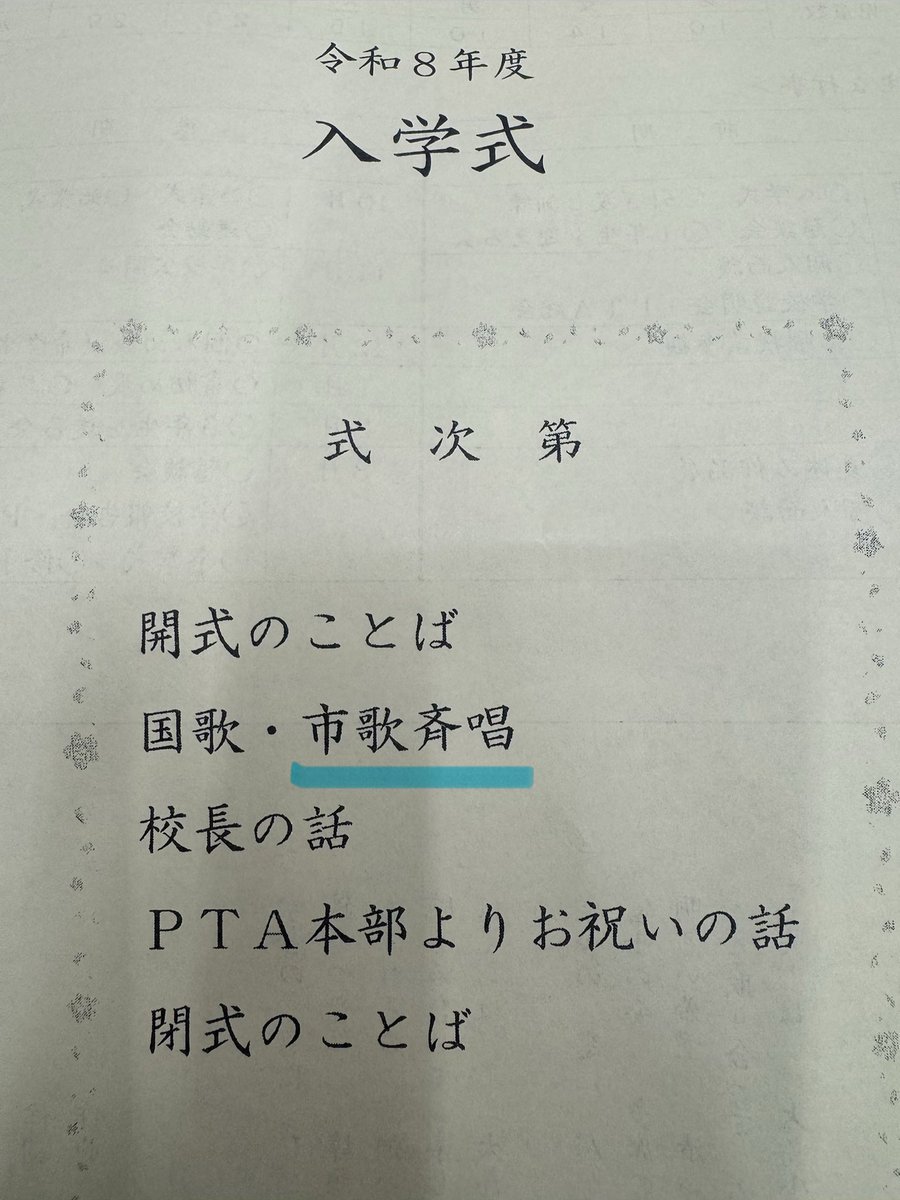 令和８年度
入学式
式次第
開式のことば
国歌・市歌斉唱
校長の話
ＰＴＡ本部よりお祝いの話
閉式のことば